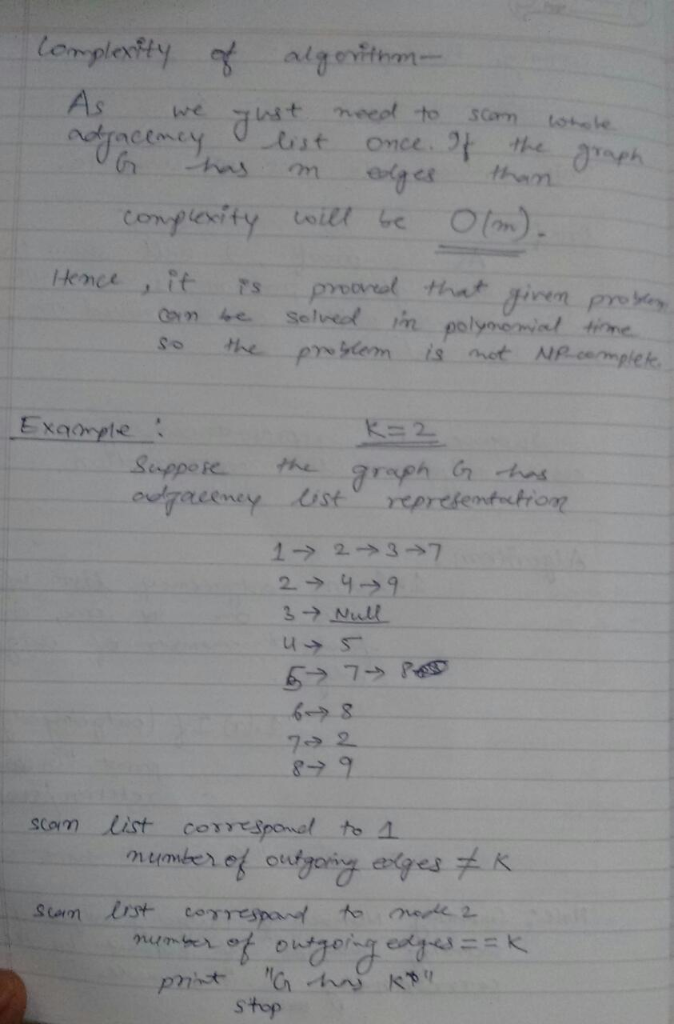 Complexity of algorithm—
As we just need to scan whole
adjacency list once. If the graph
G has m edges than
complexity will be O(m).
Hence, it is prooved that given problem
can be solved in polynomial time
so the problem is not NP-complete.
Example : K=2
Suppose the graph G has
adjacency list representation
1 → 2 → 3 → 7
2 → 4 → 9
3 → Null
4 → 5
5 → 7 → 8
6 → 8
7 → 2
8 → 9
scan list correspond to 1
number of outgoing edges ≠ K
scan list correspond to node 2
number of outgoing edges == K
print "G has K"
stop